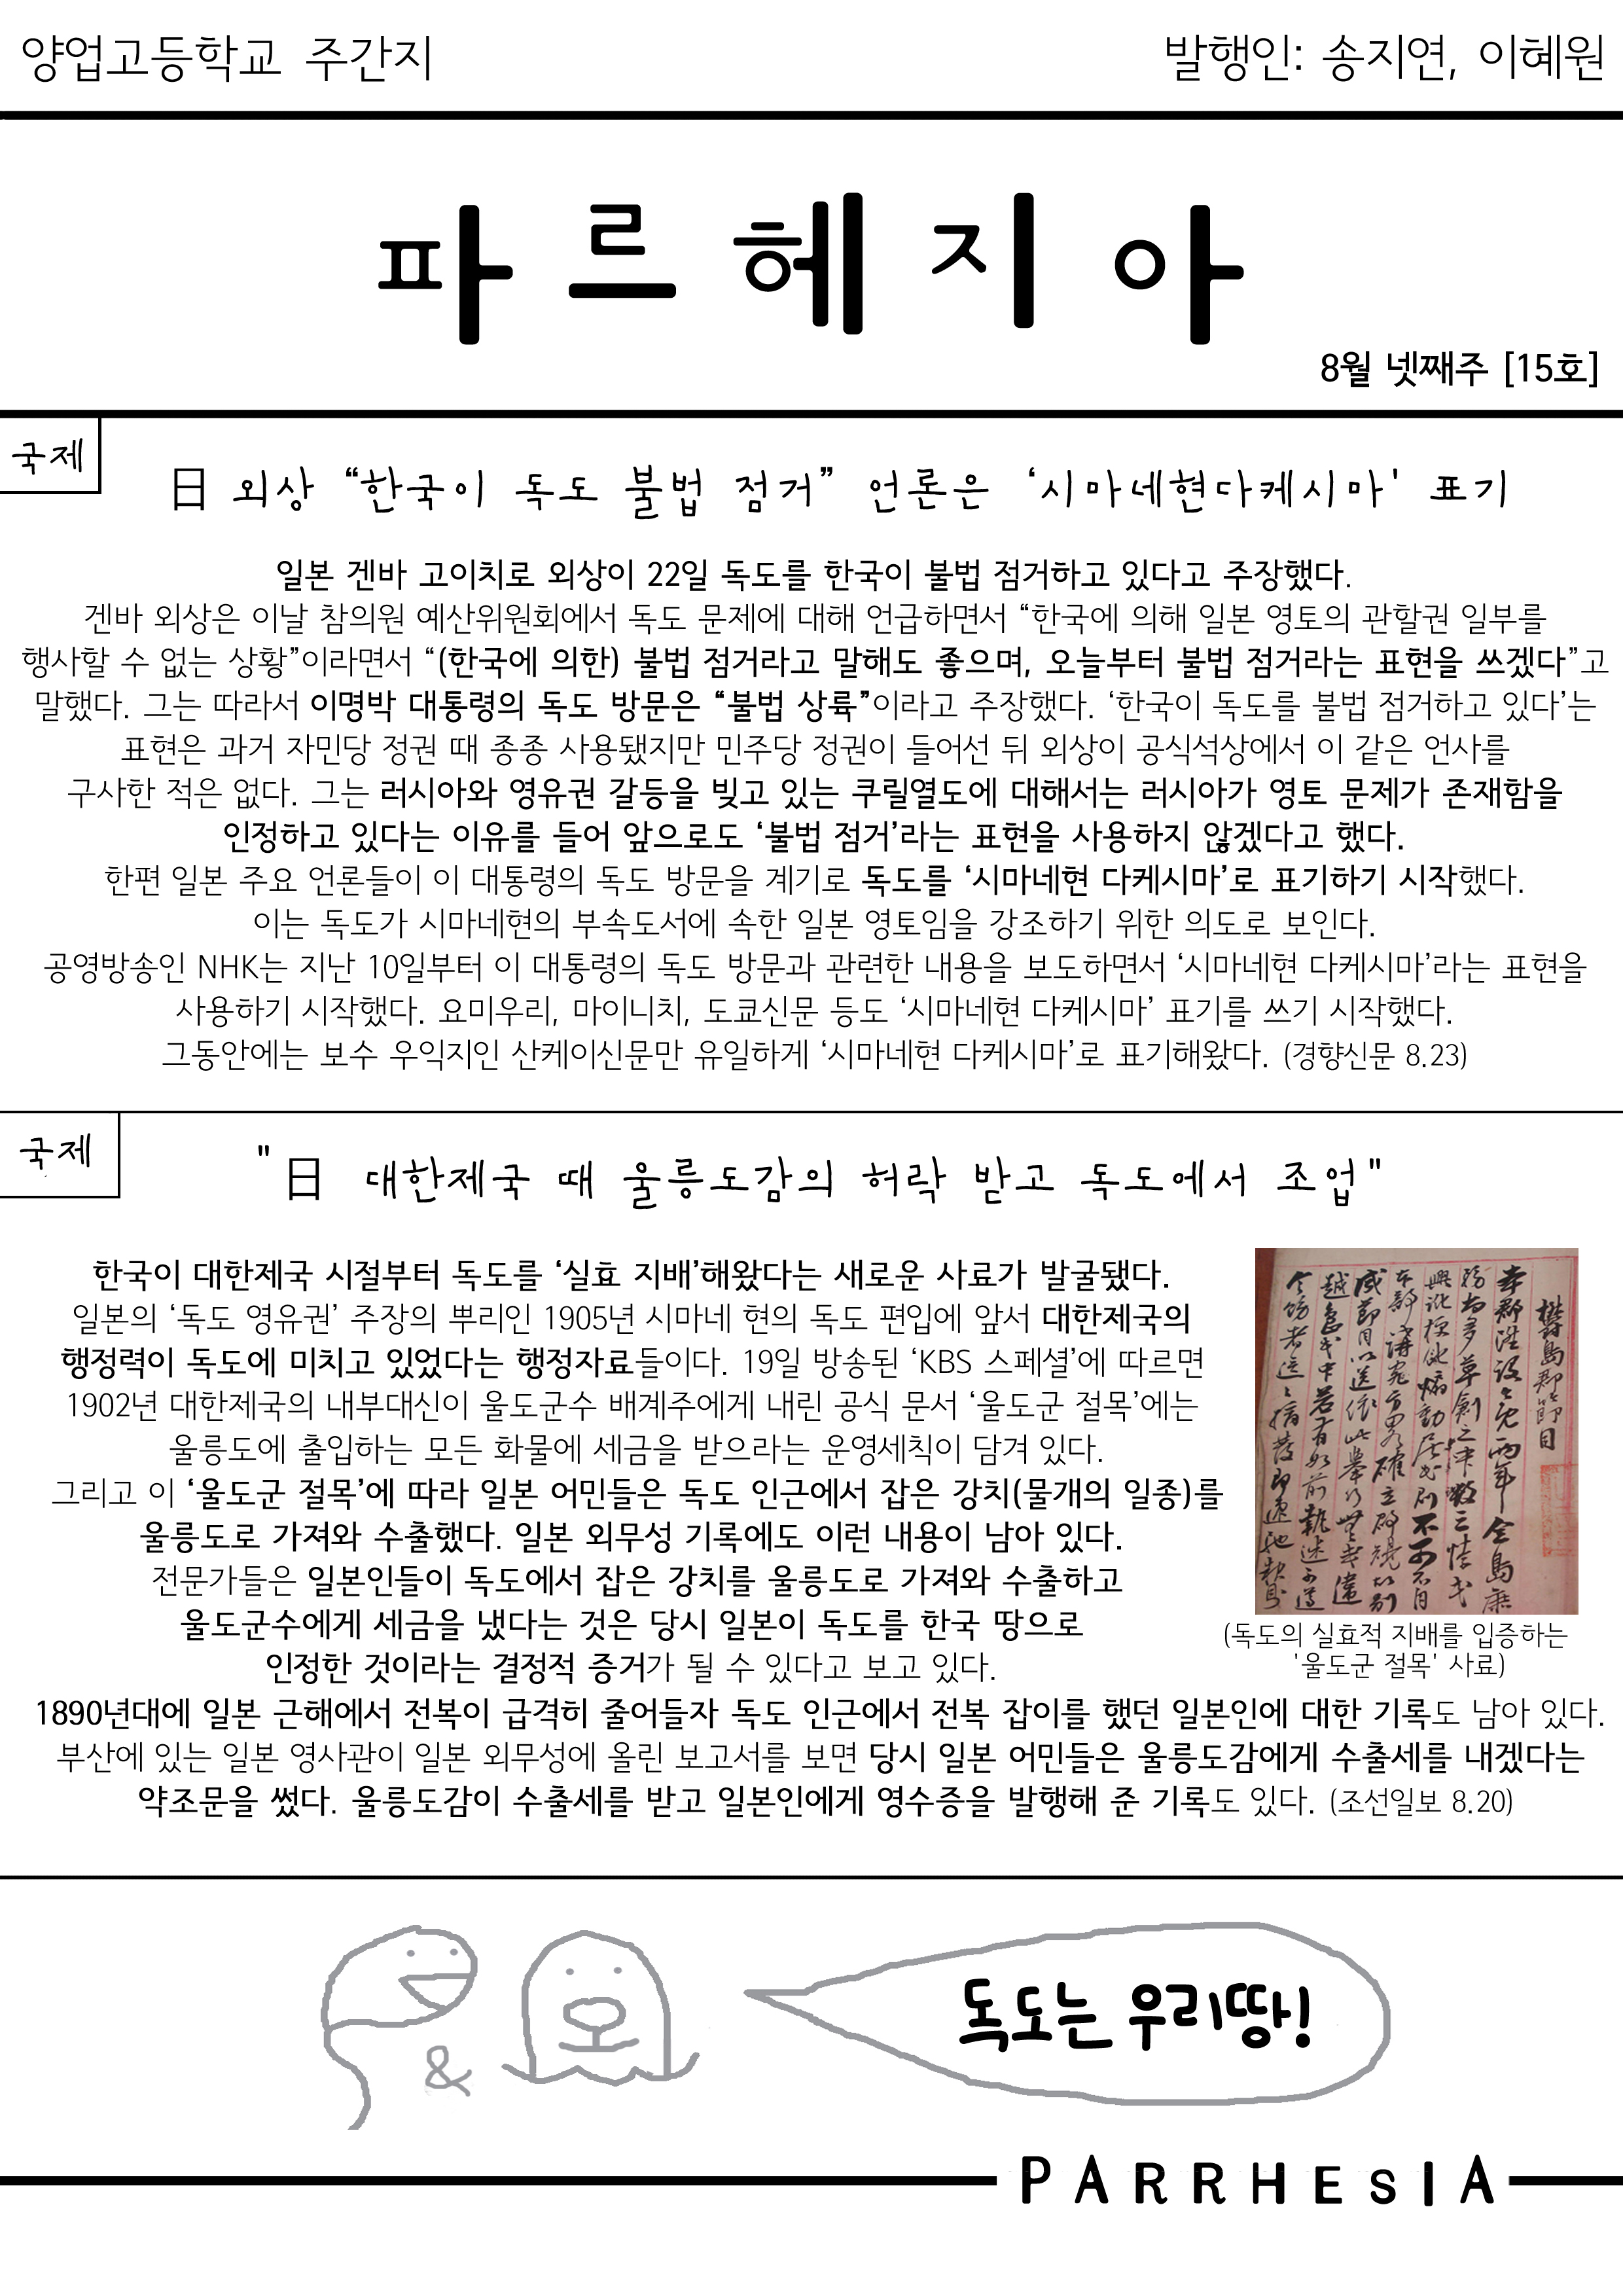 양업고등학교 주간지
발행인: 송지연, 이혜원
파르헤지아
8월 넷째주 [15호]
국제
日 외상 “한국이 독도 불법 점거” 언론은 ‘시마네현다케시마' 표기
일본 겐바 고이치로 외상이 22일 독도를 한국이 불법 점거하고 있다고 주장했다.
겐바 외상은 이날 참의원 예산위원회에서 독도 문제에 대해 언급하면서 “한국에 의해 일본 영토의 관할권 일부를
행사할 수 없는 상황”이라면서 “(한국에 의한) 불법 점거라고 말해도 좋으며, 오늘부터 불법 점거라는 표현을 쓰겠다”고
말했다. 그는 따라서 이명박 대통령의 독도 방문은 “불법 상륙”이라고 주장했다. ‘한국이 독도를 불법 점거하고 있다’는
표현은 과거 자민당 정권 때 종종 사용됐지만 민주당 정권이 들어선 뒤 외상이 공식석상에서 이 같은 언사를
구사한 적은 없다. 그는 러시아와 영유권 갈등을 빚고 있는 쿠릴열도에 대해서는 러시아가 영토 문제가 존재함을
인정하고 있다는 이유를 들어 앞으로도 ‘불법 점거’라는 표현을 사용하지 않겠다고 했다.
한편 일본 주요 언론들이 이 대통령의 독도 방문을 계기로 독도를 ‘시마네현 다케시마’로 표기하기 시작했다.
이는 독도가 시마네현의 부속도서에 속한 일본 영토임을 강조하기 위한 의도로 보인다.
공영방송인 NHK는 지난 10일부터 이 대통령의 독도 방문과 관련한 내용을 보도하면서 ‘시마네현 다케시마’라는 표현을
사용하기 시작했다. 요미우리, 마이니치, 도쿄신문 등도 ‘시마네현 다케시마’ 표기를 쓰기 시작했다.
그동안에는 보수 우익지인 산케이신문만 유일하게 ‘시마네현 다케시마’로 표기해왔다. (경향신문 8.23)
국제
"日 대한제국 때 울릉도감의 허락 받고 독도에서 조업"
한국이 대한제국 시절부터 독도를 ‘실효 지배’해왔다는 새로운 사료가 발굴됐다.
일본의 ‘독도 영유권’ 주장의 뿌리인 1905년 시마네 현의 독도 편입에 앞서 대한제국의
행정력이 독도에 미치고 있었다는 행정자료들이다. 19일 방송된 ‘KBS 스페셜’에 따르면
1902년 대한제국의 내부대신이 울도군수 배계주에게 내린 공식 문서 ‘울도군 절목’에는
울릉도에 출입하는 모든 화물에 세금을 받으라는 운영세칙이 담겨 있다.
그리고 이 ‘울도군 절목’에 따라 일본 어민들은 독도 인근에서 잡은 강치(물개의 일종)를
울릉도로 가져와 수출했다. 일본 외무성 기록에도 이런 내용이 남아 있다.
전문가들은 일본인들이 독도에서 잡은 강치를 울릉도로 가져와 수출하고
울도군수에게 세금을 냈다는 것은 당시 일본이 독도를 한국 땅으로
인정한 것이라는 결정적 증거가 될 수 있다고 보고 있다.
1890년대에 일본 근해에서 전복이 급격히 줄어들자 독도 인근에서 전복 잡이를 했던 일본인에 대한 기록도 남아 있다.
부산에 있는 일본 영사관이 일본 외무성에 올린 보고서를 보면 당시 일본 어민들은 울릉도감에게 수출세를 내겠다는
약조문을 썼다. 울릉도감이 수출세를 받고 일본인에게 영수증을 발행해 준 기록도 있다. (조선일보 8.20)
鬱島郡節目
(독도의 실효적 지배를 입증하는
'울도군 절목' 사료)
&
독도는 우리땅!
PARRHESIA